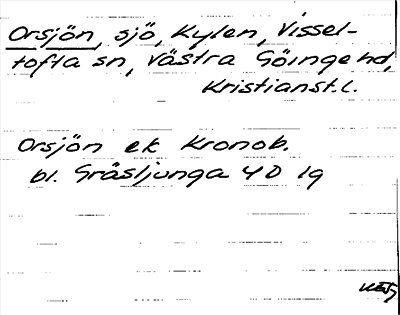 Orsjön, sjö, Kylen, Vissel-
tofta sn, Västra Göinge hd,
Kristianst. l.
Orsjön ek Kronob.
bl. Gråsljunga 4D 1g